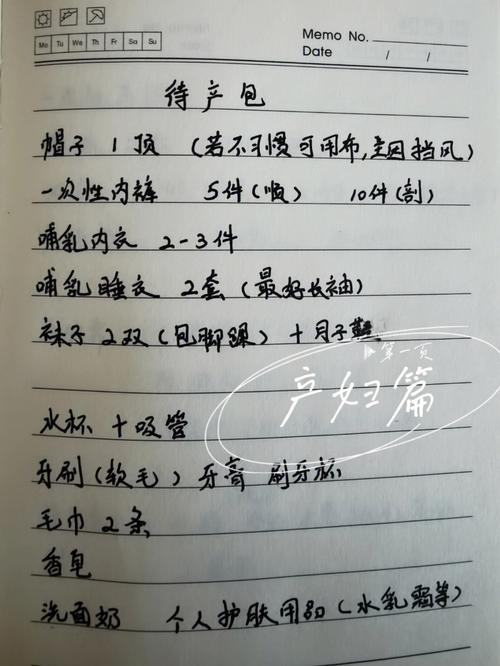 Memo No.
Mo Tu We Th Fr Sa Su
Date / /
待产包
帽子 1顶 (若不习惯可用布,主因挡风)
一次性内裤 5件(顺) 10件(剖)
哺乳内衣 2-3件
哺乳睡衣 2套(最好长袖)
袜子2双(包脚踝)+月子鞋
第一页
产妇篇
水杯+吸管
牙刷(软毛)牙膏 刷牙杯
毛巾2条
香皂
洗面奶 个人护肤用品(水乳霜等)